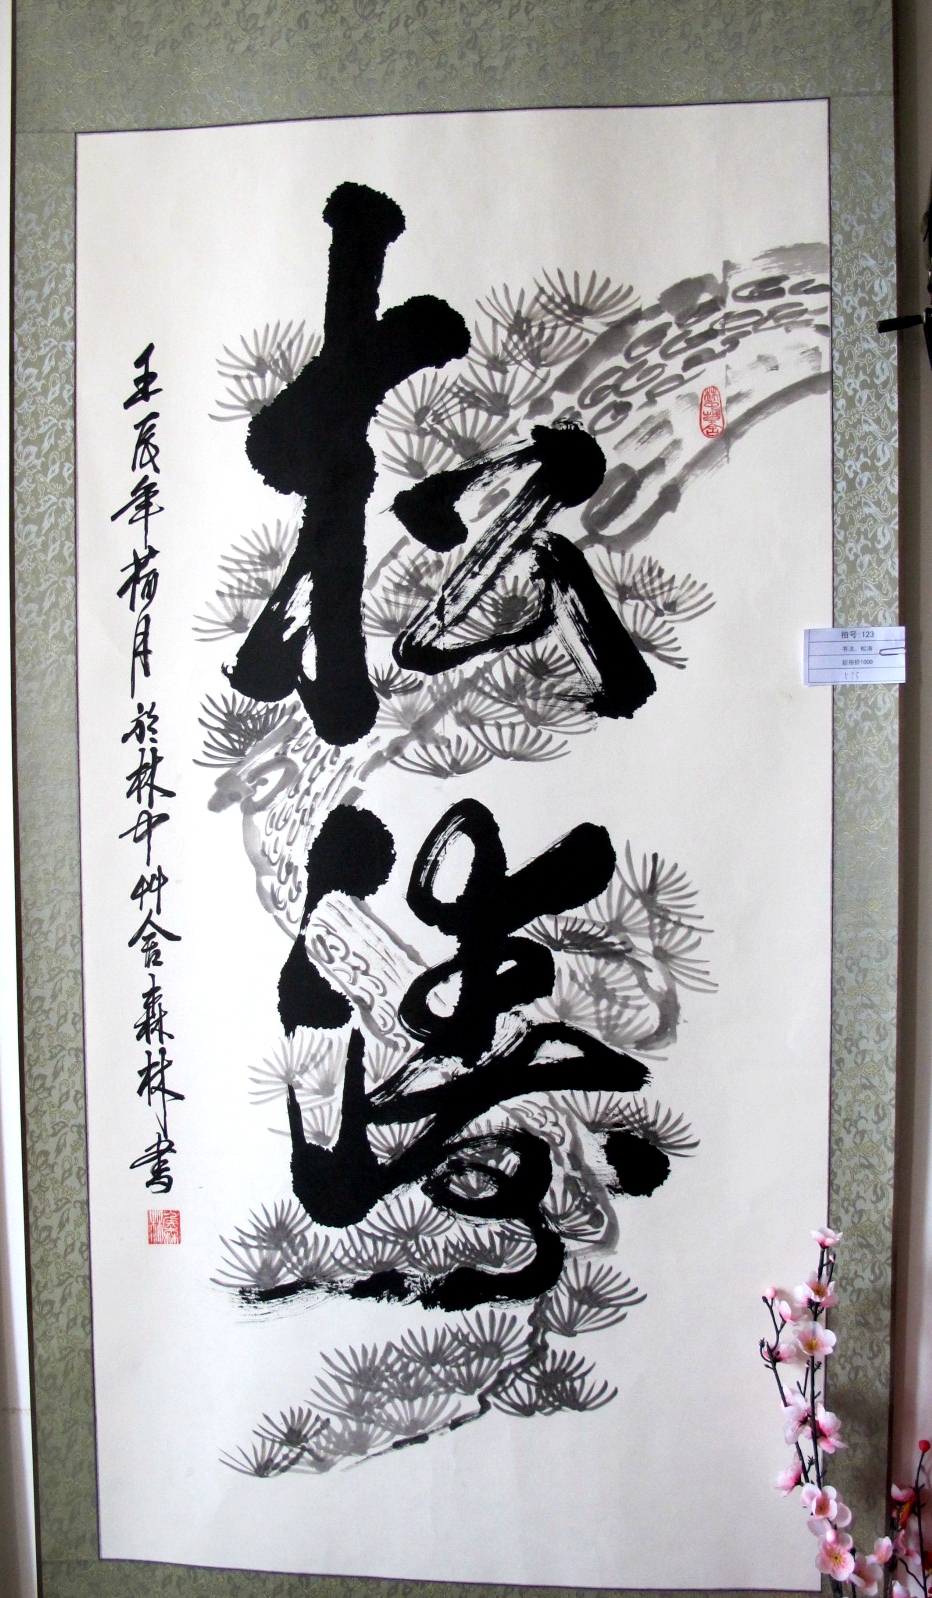 松濤
壬辰年荷月於林中艸舍森林書
拍号:123
书法：松涛
起拍价1000